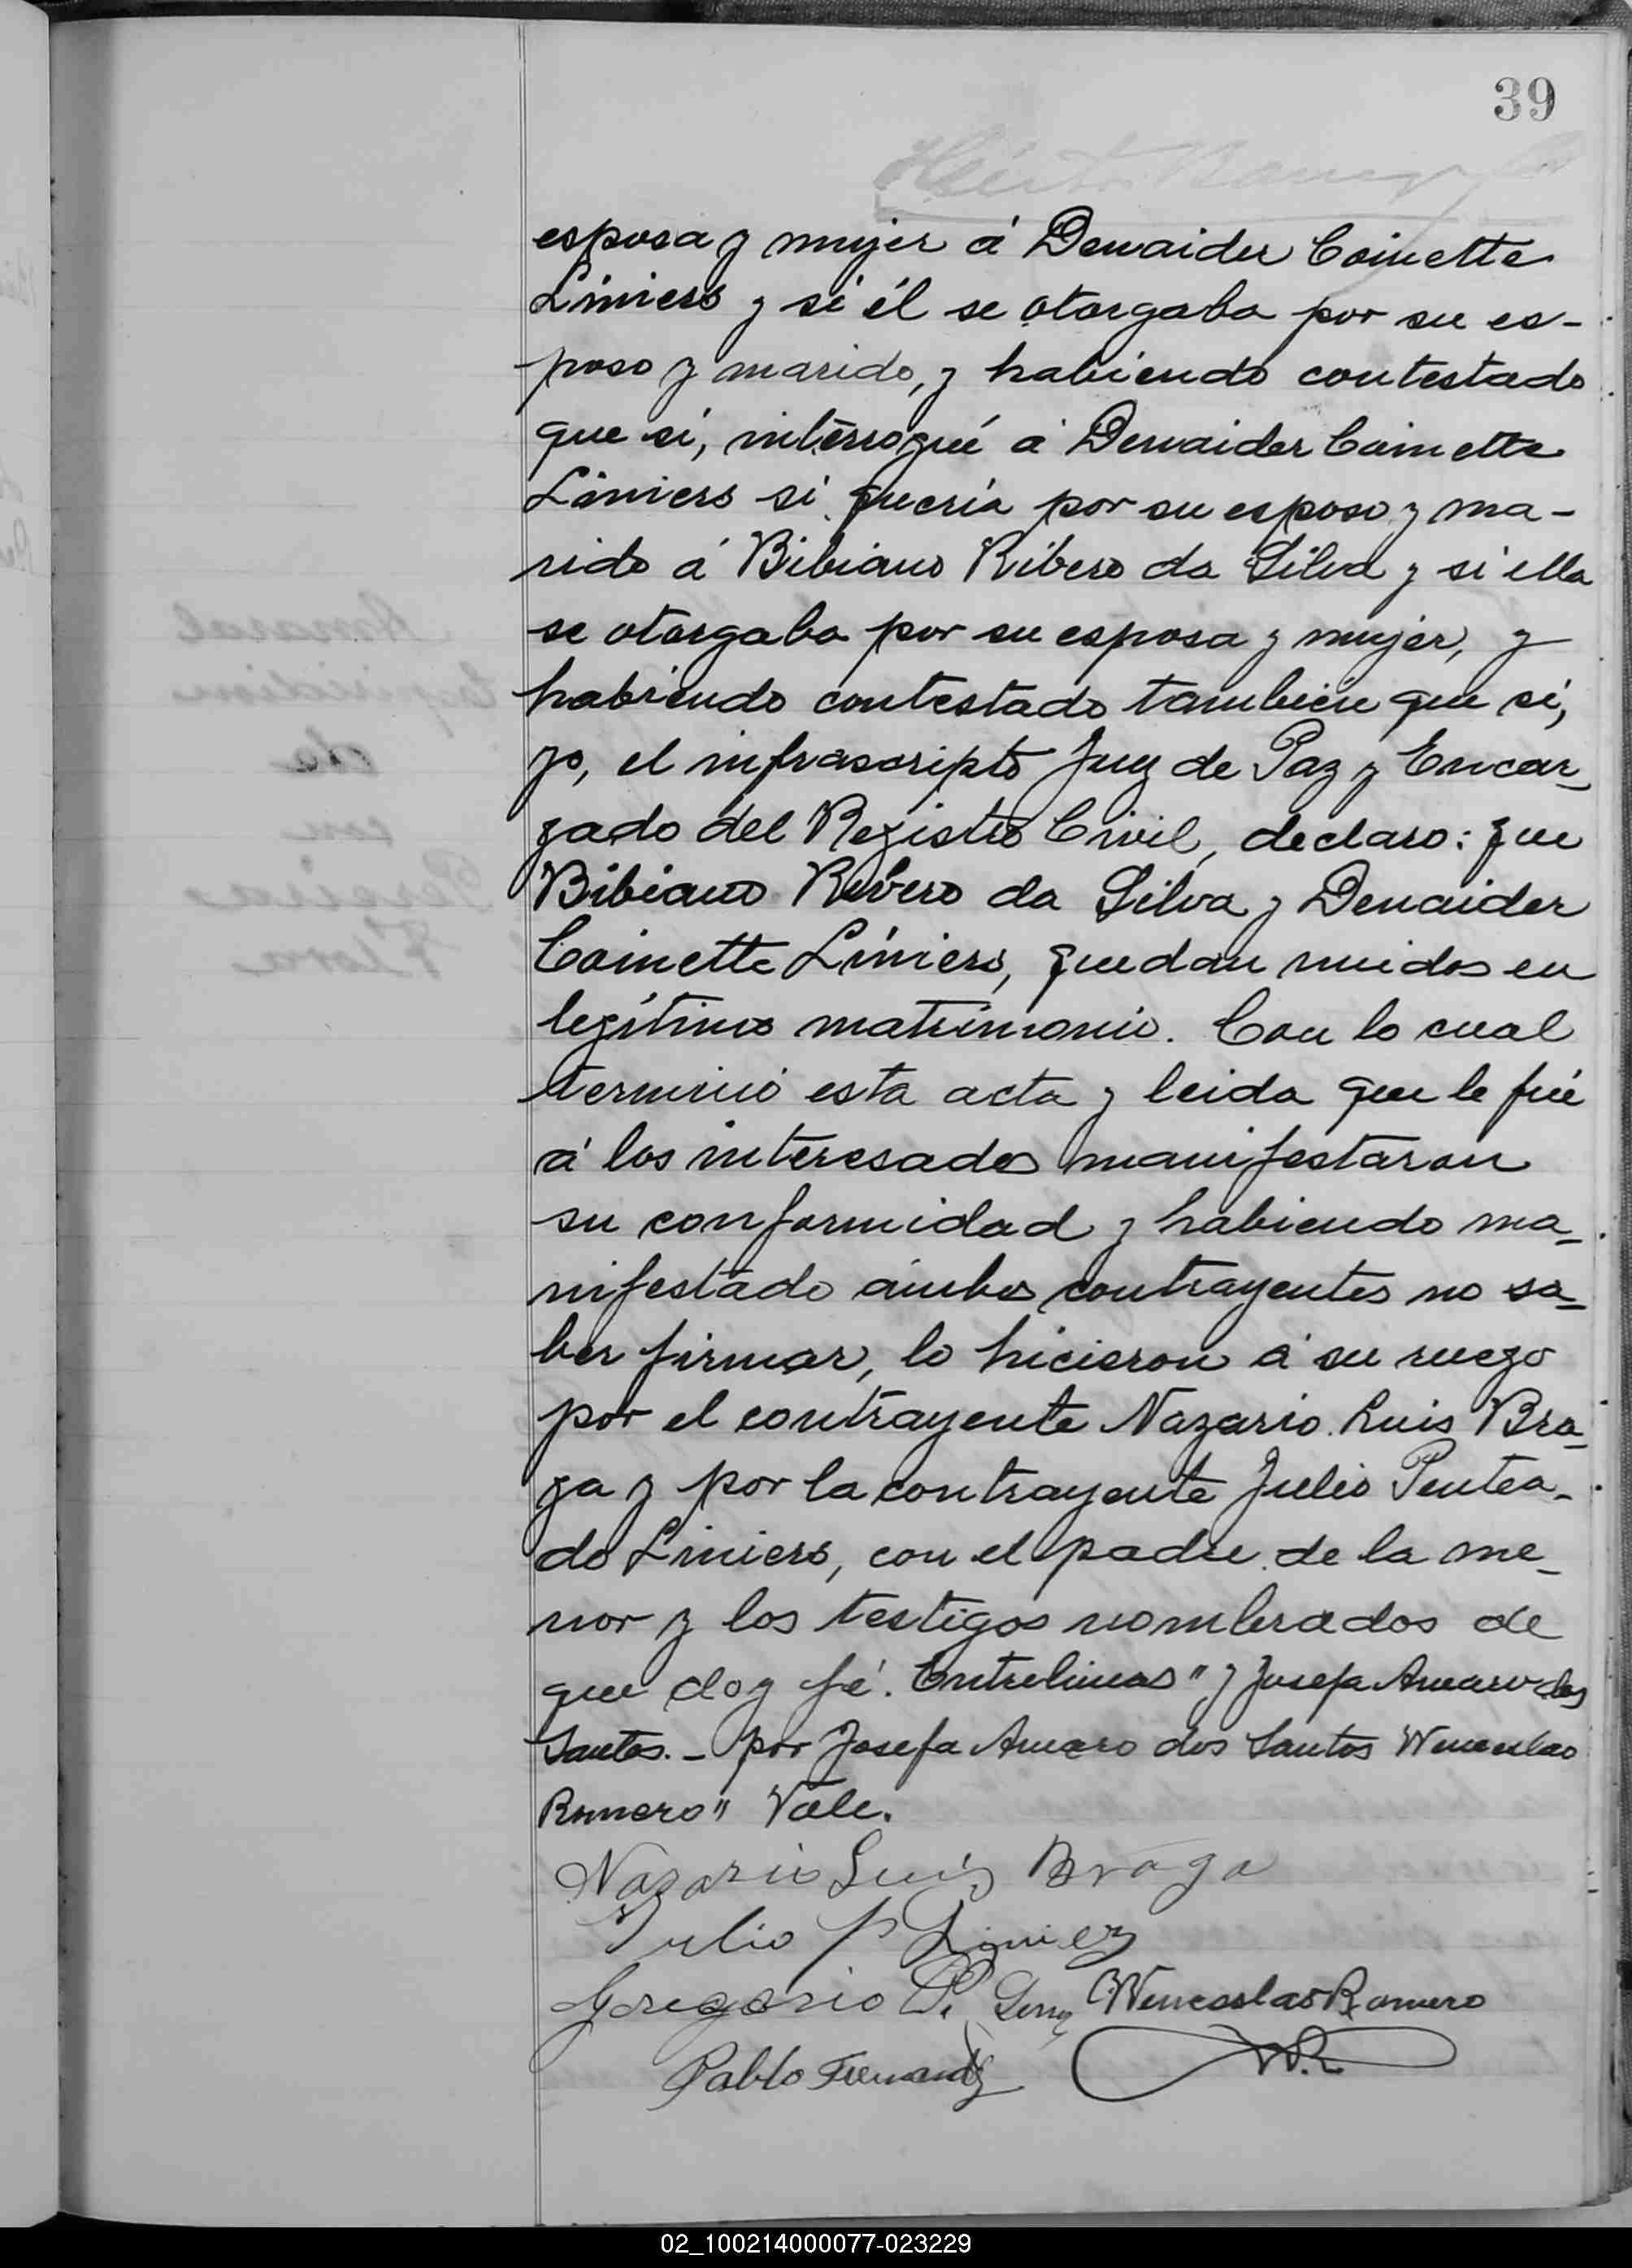 39
esposa y mujer á Denaider Coinette
Liniers y si él se otorgaba por su es-
poso y marido, y habiendo contestado
que si, interrogué á Denaider Coinette
Liniers si queria por su esposo y ma-
rido á Bibiano Ribero da Silva y si ella
se otorgaba por su esposa y mujer, y
habiendo contestado tambien que si,
yo, el infrascripto Juez de Paz y Encar-
gado del Registro Civil, declaro: que
Bibiano Ribero da Silva y Denaider
Coinette Liniers, quedan unidos en
legítimo matrimonio. Con lo cual
terminó esta acta y leida que le fué
á los interesados manifestaron
su conformidad y habiendo ma-
nifestado ambos contrayentes no sa-
ber firmar, lo hicieron á su ruego
por el contrayente Nazario Luis Bra-
ga y por la contrayente Julio Pentea-
do Liniers, con el padre de la me-
nor y los testigos nombrados de
que doy fé. Entrelineas " y Josefa Amaro dos
Santos. - por Josefa Amaro dos Santos Wenceslao
Romero" Vale.
Nazario Luis Braga
Julio P Liniers
Gregorio P. Wenceslao Romero
Pablo Fernandez W.R.
02_100214000077-023229